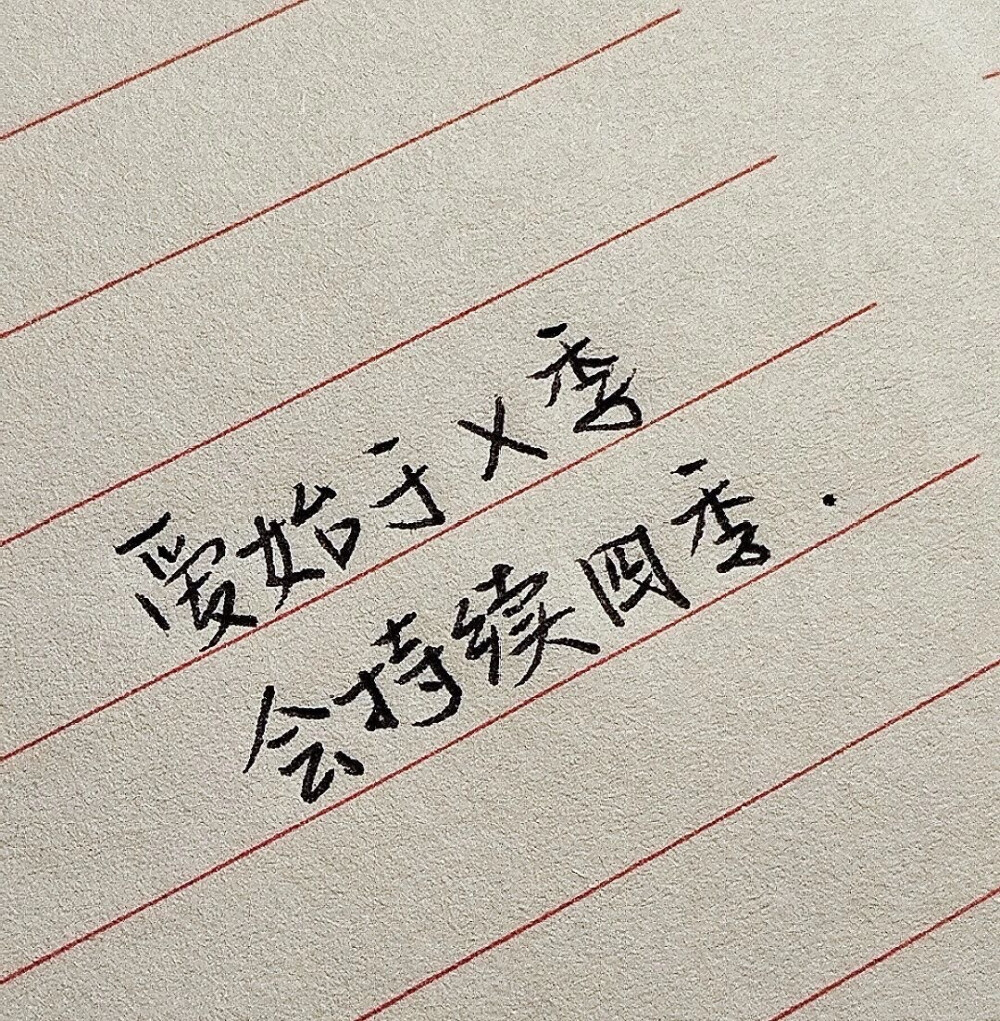 爱始于X季
会持续四季.